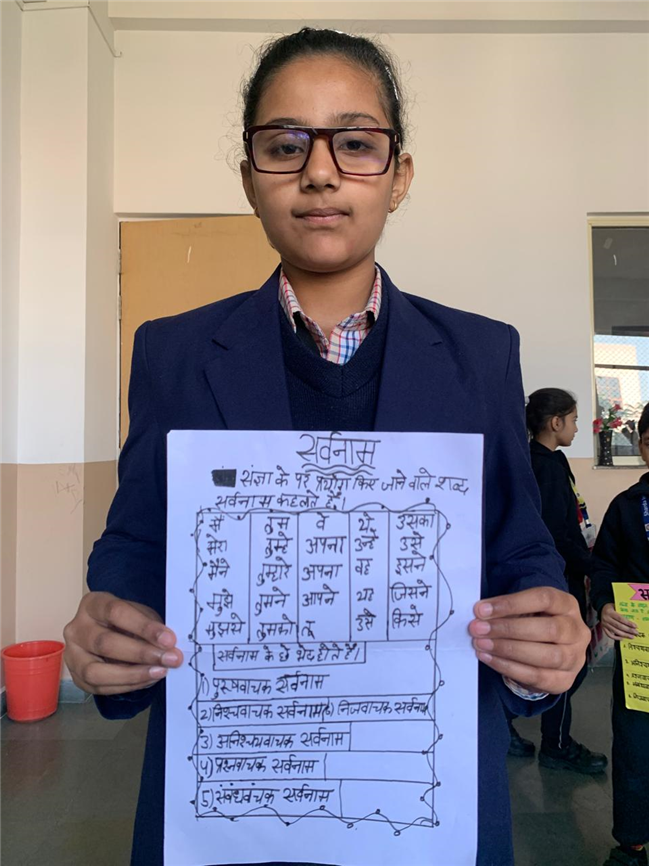 सर्वनाम
संज्ञा के पर प्रयोग किए जाने वाले शब्द
सर्वनाम कहलाते हैं।
मैं तुम वे ये उसका
मेरा तुम्हे अपना उन्हे उसे
मैंने तुम्हारे अपना वह इसने
मुझे तुमने आपने यह जिसने
मुझसे तुमको तू उसे किसे
सर्वनाम के छे भेद होते हैं।
1) पुरुषवाचक सर्वनाम
2) निश्चवाचक सर्वनाम 6) निजवाचक सर्वनाम
3) अनिश्चयवाचक सर्वनाम
4) प्रश्नवाचक सर्वनाम
5) संबंधवंचक सर्वनाम